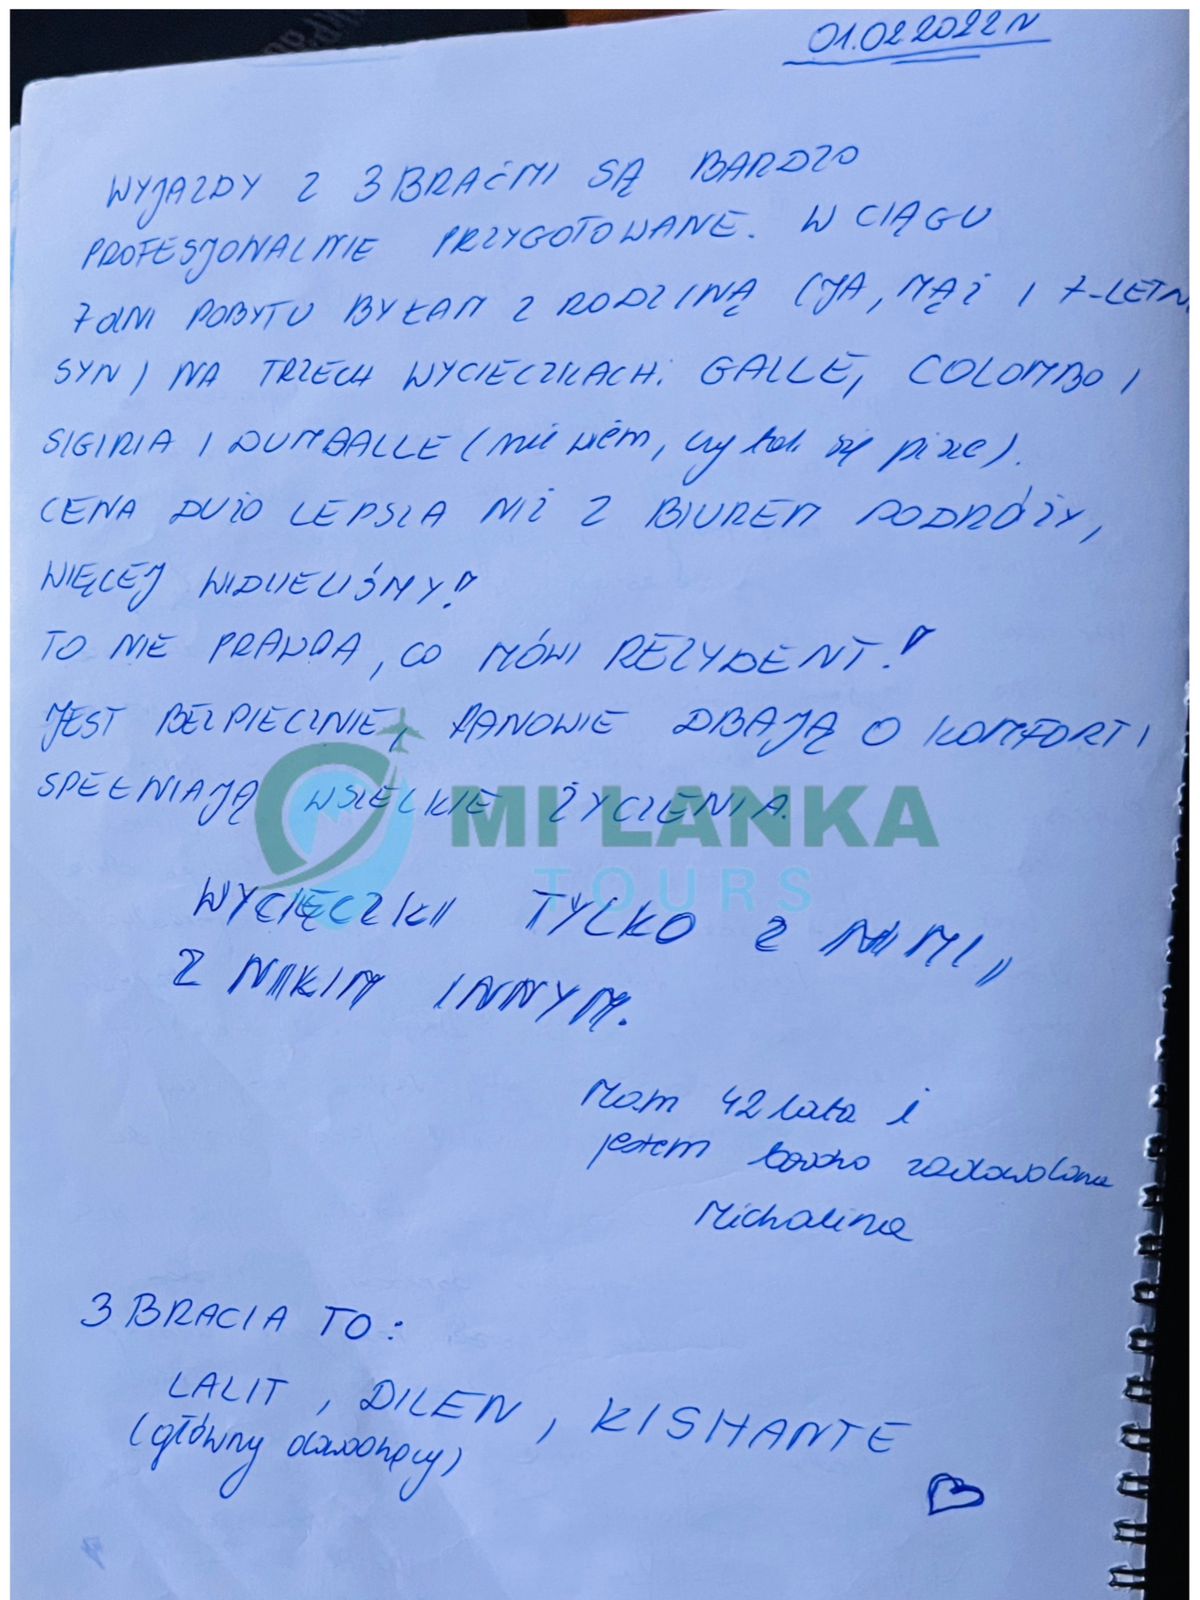 01.02.2022
WYJAZDY Z 3 BRAĆMI SĄ BARDZO
PROFESJONALNIE PRZYGOTOWANE. W CIĄGU
7 dNI POBYTU BYŁAM Z RODZINĄ (JA, MĄŻ I 7-LETNI
SYN) NA TRZECH WYCIECZKACH: GALLE, COLOMBO I
SIGIRIA I DUMBALLE (nie wiem, czy tak się pisze).
CENA DUŻO LEPSZA NIŻ Z BIUREM PODRÓŻY,
WIĘCEJ WIDZIELIŚMY!
TO NIE PRAWDA, CO MÓWI REZYDENT!
JEST BEZPIECZNIE, PANOWIE DBAJĄ O KOMFORT I
SPEŁNIAJĄ WSZELKIE ŻYCZENIA.
MI LANKA
TOURS
WYCIĘCZKI TYLKO Z NIMI,
Z NIKIM INNYM.
Mam 42 lata i
jestem bardzo zadowolona
Michalina
3 BRACIA TO:
LALIT, DILEN, KISHANTE
(główny dowodzący)